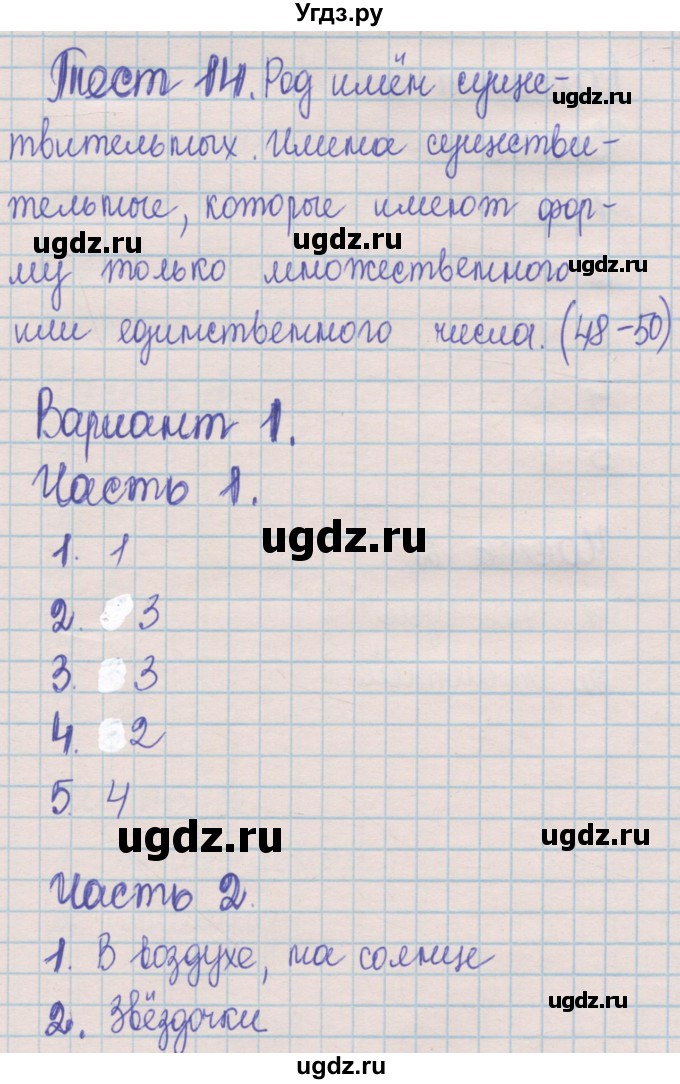 Угдз.ру
Тест 14. Род имён сущес-
ugdz.ru
твительных. Имена существи-
тельные, которые имеют фор-
ugdz.ru
ugdz.ru
ugdz.ru
му только множественного
или единственного числа. (48-50)
Вариант 1.
Часть 1.
ugdz.ru
1. 1
2. 3
3. 3
4. 2
5. 4
ugdz.ru
ugdz.ru
Часть 2.
1. В воздухе, на солнце
ugdz.ru
2. Звёздочки
ugdz.ru